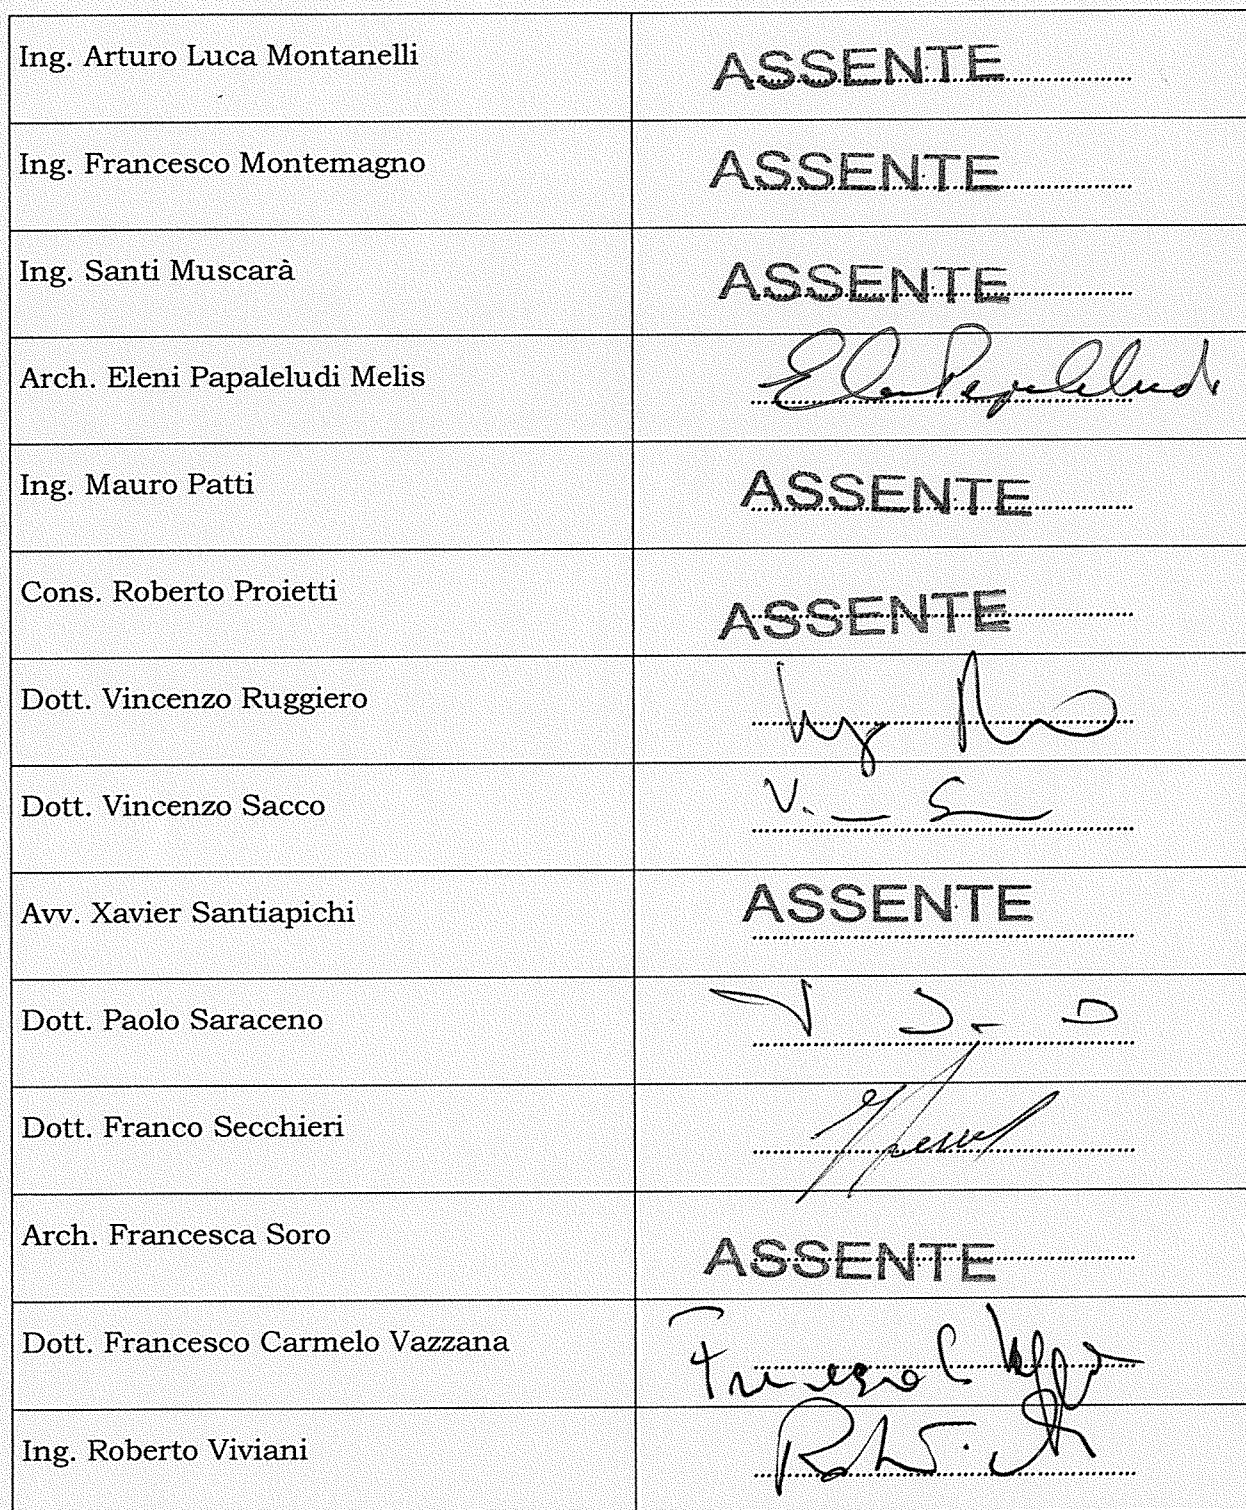 Ing. Arturo Luca Montanelli ASSENTE
Ing. Francesco Montemagno ASSENTE
Ing. Santi Muscarà ASSENTE
Arch. Eleni Papaleludi Melis Eleni Papaleludi
Ing. Mauro Patti ASSENTE
Cons. Roberto Proietti ASSENTE
Dott. Vincenzo Ruggiero
Dott. Vincenzo Sacco V. S
Avv. Xavier Santiapichi ASSENTE
Dott. Paolo Saraceno
Dott. Franco Secchieri
Arch. Francesca Soro ASSENTE
Dott. Francesco Carmelo Vazzana Francesco C
Ing. Roberto Viviani